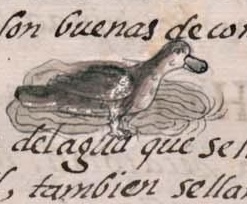 son buenas de com
del agua que se ll
, tambien se lla